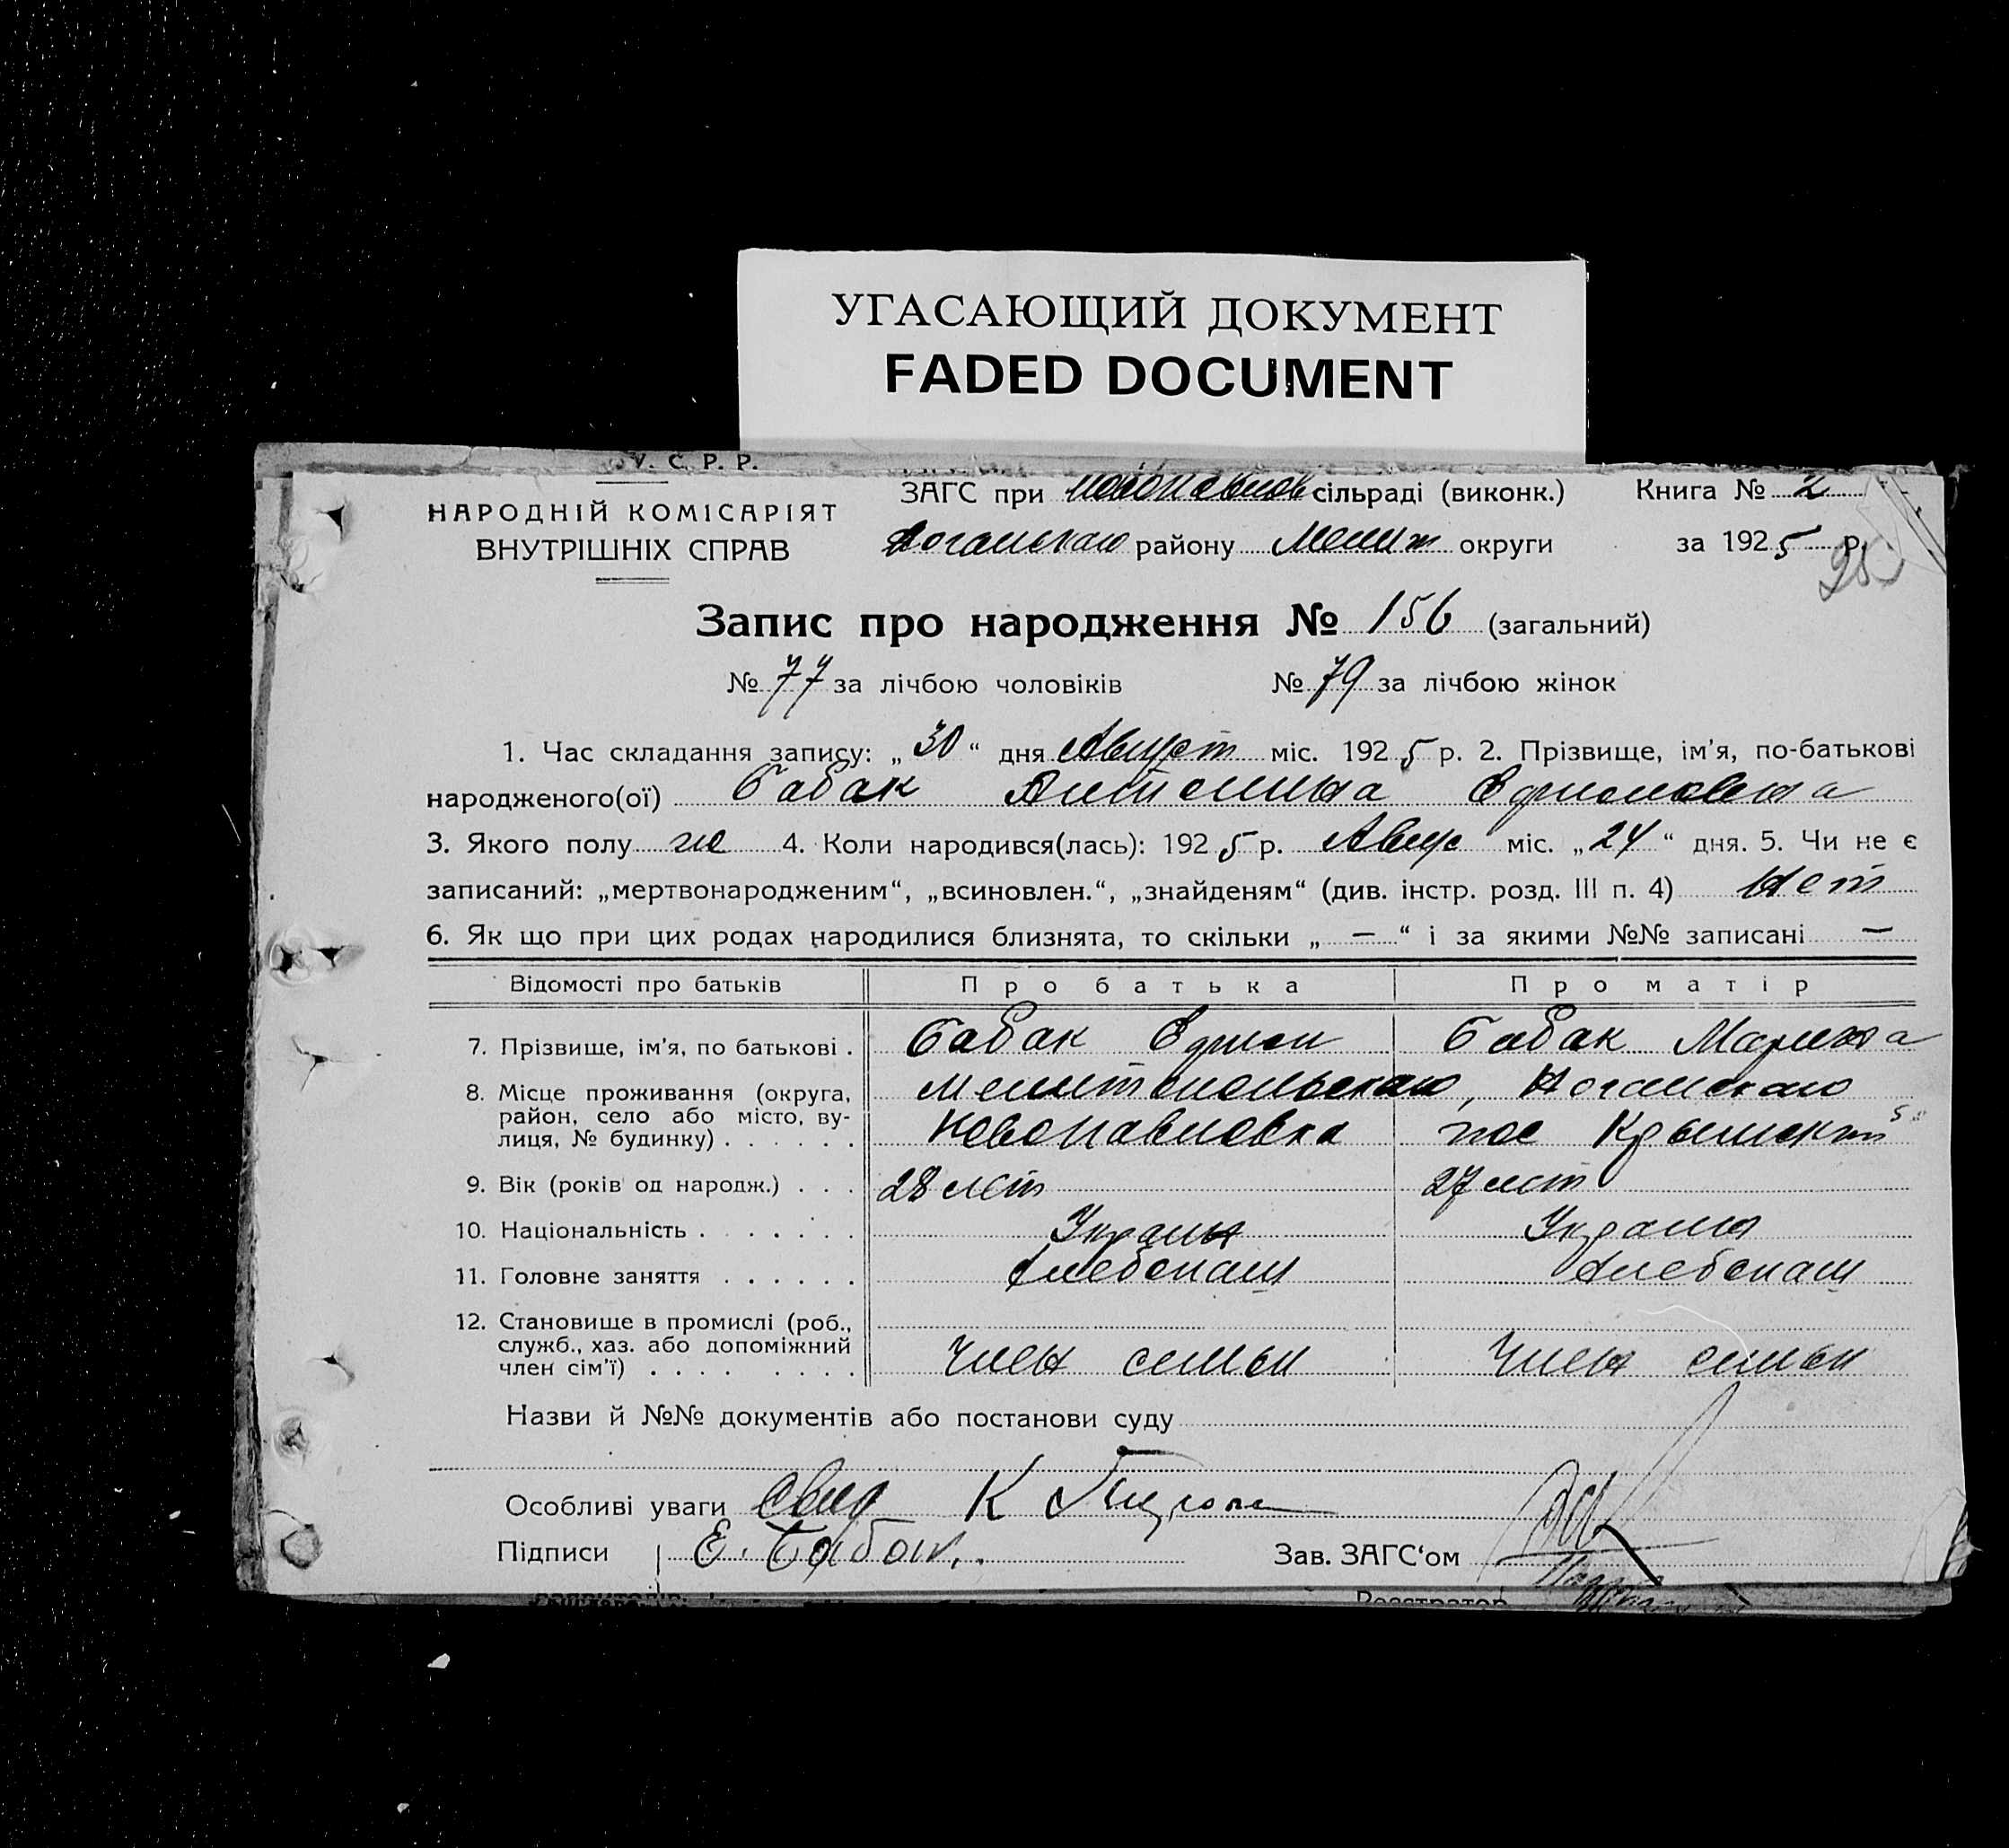 УГАСАЮЩИЙ ДОКУМЕНТ
FADED DOCUMENT
У. С. Р. Р.
НАРОДНІЙ КОМІСАРІЯТ
ВНУТРІШНІХ СПРАВ
ЗАГС при новопавлов сільраді (виконк.) Книга № 2
Ногайскаго району Мелит округи за 1925 р.
Запис про народження № 156 (загальний)
№ 77 за лічбою чоловіків № 79 за лічбою жінок
1. Час складання запису: „30“ дня Август міс. 1925 р. 2. Прізвище, ім'я, по-батькові
народженого(ої) Бабак
3. Якого полу же 4. Коли народився(лась): 1925 р. Авгус міс. „24“ дня. 5. Чи не є
записаний: „мертвонародженим“, „всиновлен.“, „знайденям“ (див. інстр. розд. III п. 4) Нет
6. Як що при цих родах народилися близнята, то скільки „ — “ і за якими №№ записані —
Відомості про батьків Про батька Про матір
7. Прізвище, ім'я, по батькові . Бабак Бабак
8. Місце проживання (округа, район, село або місто, вулиця, № будинку) . . . . . . Мелитопольскаго, Ногайскаго
Новопавловка пос
9. Вік (років од народж.) . . . 28 лет 27 лет
10. Національність . . . . . . . Украин Украин
11. Головне заняття . . . . . . Хлебопаш Хлебопаш
12. Становище в промислі (роб., служб., хаз. або допоміжний член сім'ї) . . . . . . . . Член семьи Член семьи
Назви й №№ документів або постанови суду
Особливі уваги
Підписи Е. Бабак. Зав. ЗАГС‘ом
Реєстратор